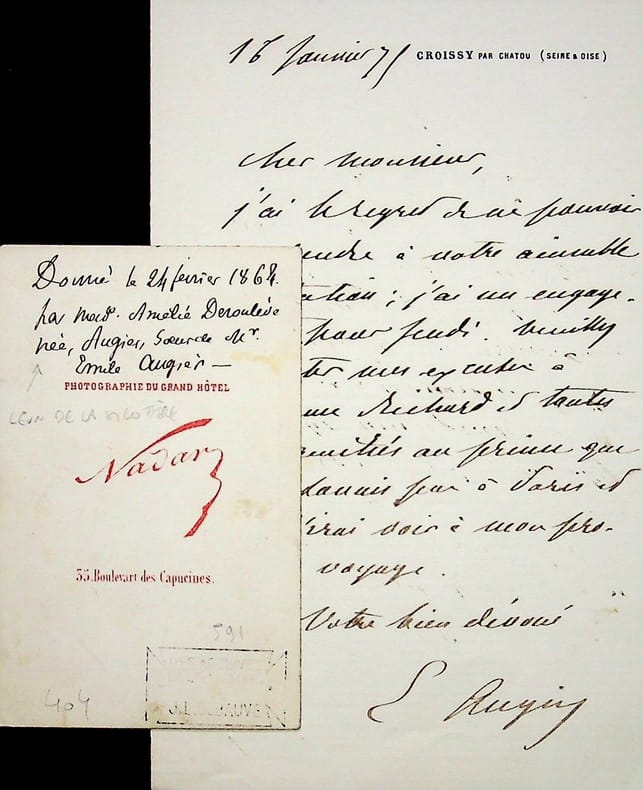 18 Janvier 75 CROISSY PAR CHATOU (SEINE & OISE)
cher monsieur,
j'ai le regret de ne pouvoir
endre à votre aimable
tation ; j'ai un engage-
pour jeudi. veuillez
ter mes excuses à
me Richard et toutes
amitiés au prince que
savais pas à Paris et
j'irai voir à mon pro-
voyage.
Votre bien dévoué
E Augier
Donné le 24 février 1864.
par mad. Amélie Deroulède
née, Augier, Soeur de Mr.
Emile Augier —
PHOTOGRAPHIE DU GRAND HÔTEL
LEON DE LA SICOTIÈRE
Nadar
35. Boulevart des Capucines.
591
404